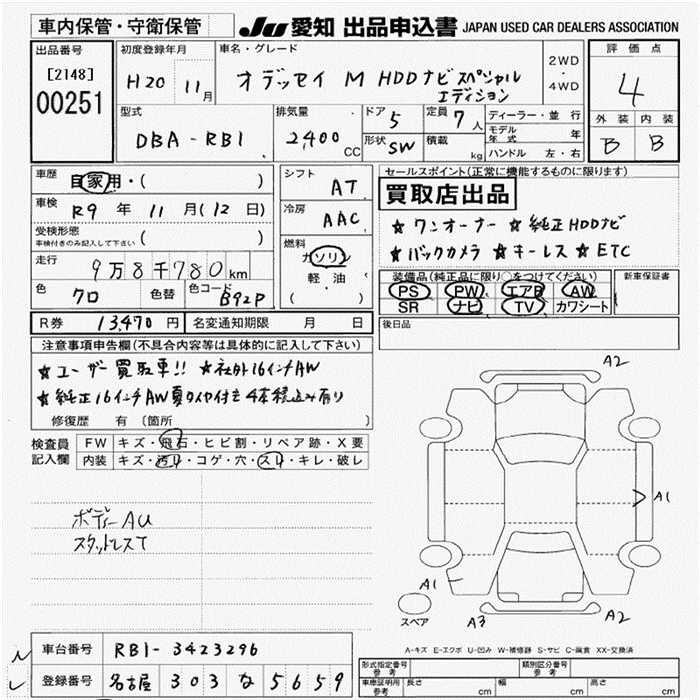 車内保管・守衛保管
JU 愛知 出品申込書 JAPAN USED CAR DEALERS ASSOCIATION
出品番号
[2148]
00251
初度登録年月
H20 11月
車名・グレード
オデッセイ M HDDナビスペシャル
エディション
2WD
・
4WD
評価点
4
外装 内装
B B
型式
DBA-RB1
排気量
2,400 CC
ドア 5
形状 SW
定員 7人
積載 kg
ディーラー・並行
モデル年式 年
ハンドル 左・右
車歴 自家用・( )
車検 R9 年 11 月(12 日)
受検形態
車検付きのみ記入して下さい ( )
走行 9万8千780km
色 クロ 色替 色コード B92P
シフト AT
冷房 AAC
燃料
ガソリン
軽・油
( )
セールスポイント(正常に機能するものに限ります)
買取店出品
★ワンオーナー ★純正HDDナビ
★バックカメラ ★キーレス ★ETC
装備品(純正品に限り○をつけてください)
PS PW エアB AW
SR ナビ TV カワシート
新車保証書
R券 13,470 円 名変通知期限 月 日
後日品
注意事項申告欄(不具合内容等は具体的に記入して下さい)
★ユーザー買取車!! ★社外16インチAW
★純正16インチAW夏タイヤ付き4本積込み有り
修復歴 有 〔箇所 〕
検査員
記入欄
FW キズ・飛石・ヒビ割・リペア跡・X要
内装 キズ・汚れ・コゲ・穴・スリ・キレ・破レ
ボディーAU
スタットレスT
A2
A1
A1
A3
A2
スペア
A-キズ E-エクボ U-凹み W-補修跡 S-サビ C-腐食 XX-交換済
車台番号 RB1-3423296
登録番号 名古屋 303 な 5659
形式指定番号
参考
類別区分番号
参考
車庫証明用
参考
長さ cm 幅 cm 高さ cm